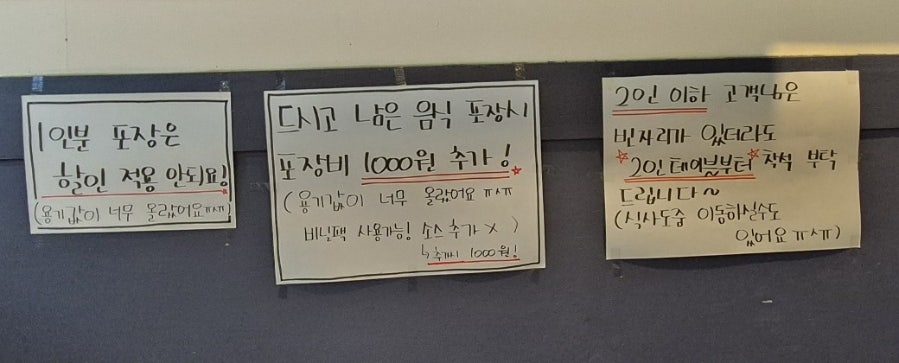 1인분 포장은
할인 적용 안돼요!
(용기값이 너무 올랐어요ㅠㅠ)
드시고 남은 음식 포장시
포장비 1000원 추가!
(용기값이 너무 올랐어요 ㅠㅠ
비닐팩 사용가능! 소스추가 X )
↳ 추가시 1000원!
2인 이하 고객님은
빈자리가 있더라도
☆2인테이블부터☆ 착석 부탁
드립니다~
(식사도중 이동하실수도
있어요ㅠㅠ)